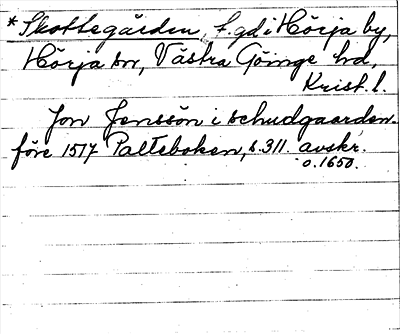 * Skottegården, f.gd i Hörja by,
Hörja sn, Västra Göinge hd,
Krist. l.
Jon Jenssön i schudgaarden.
före 1517 Palteboken, s. 311. avskr.
o. 1650.